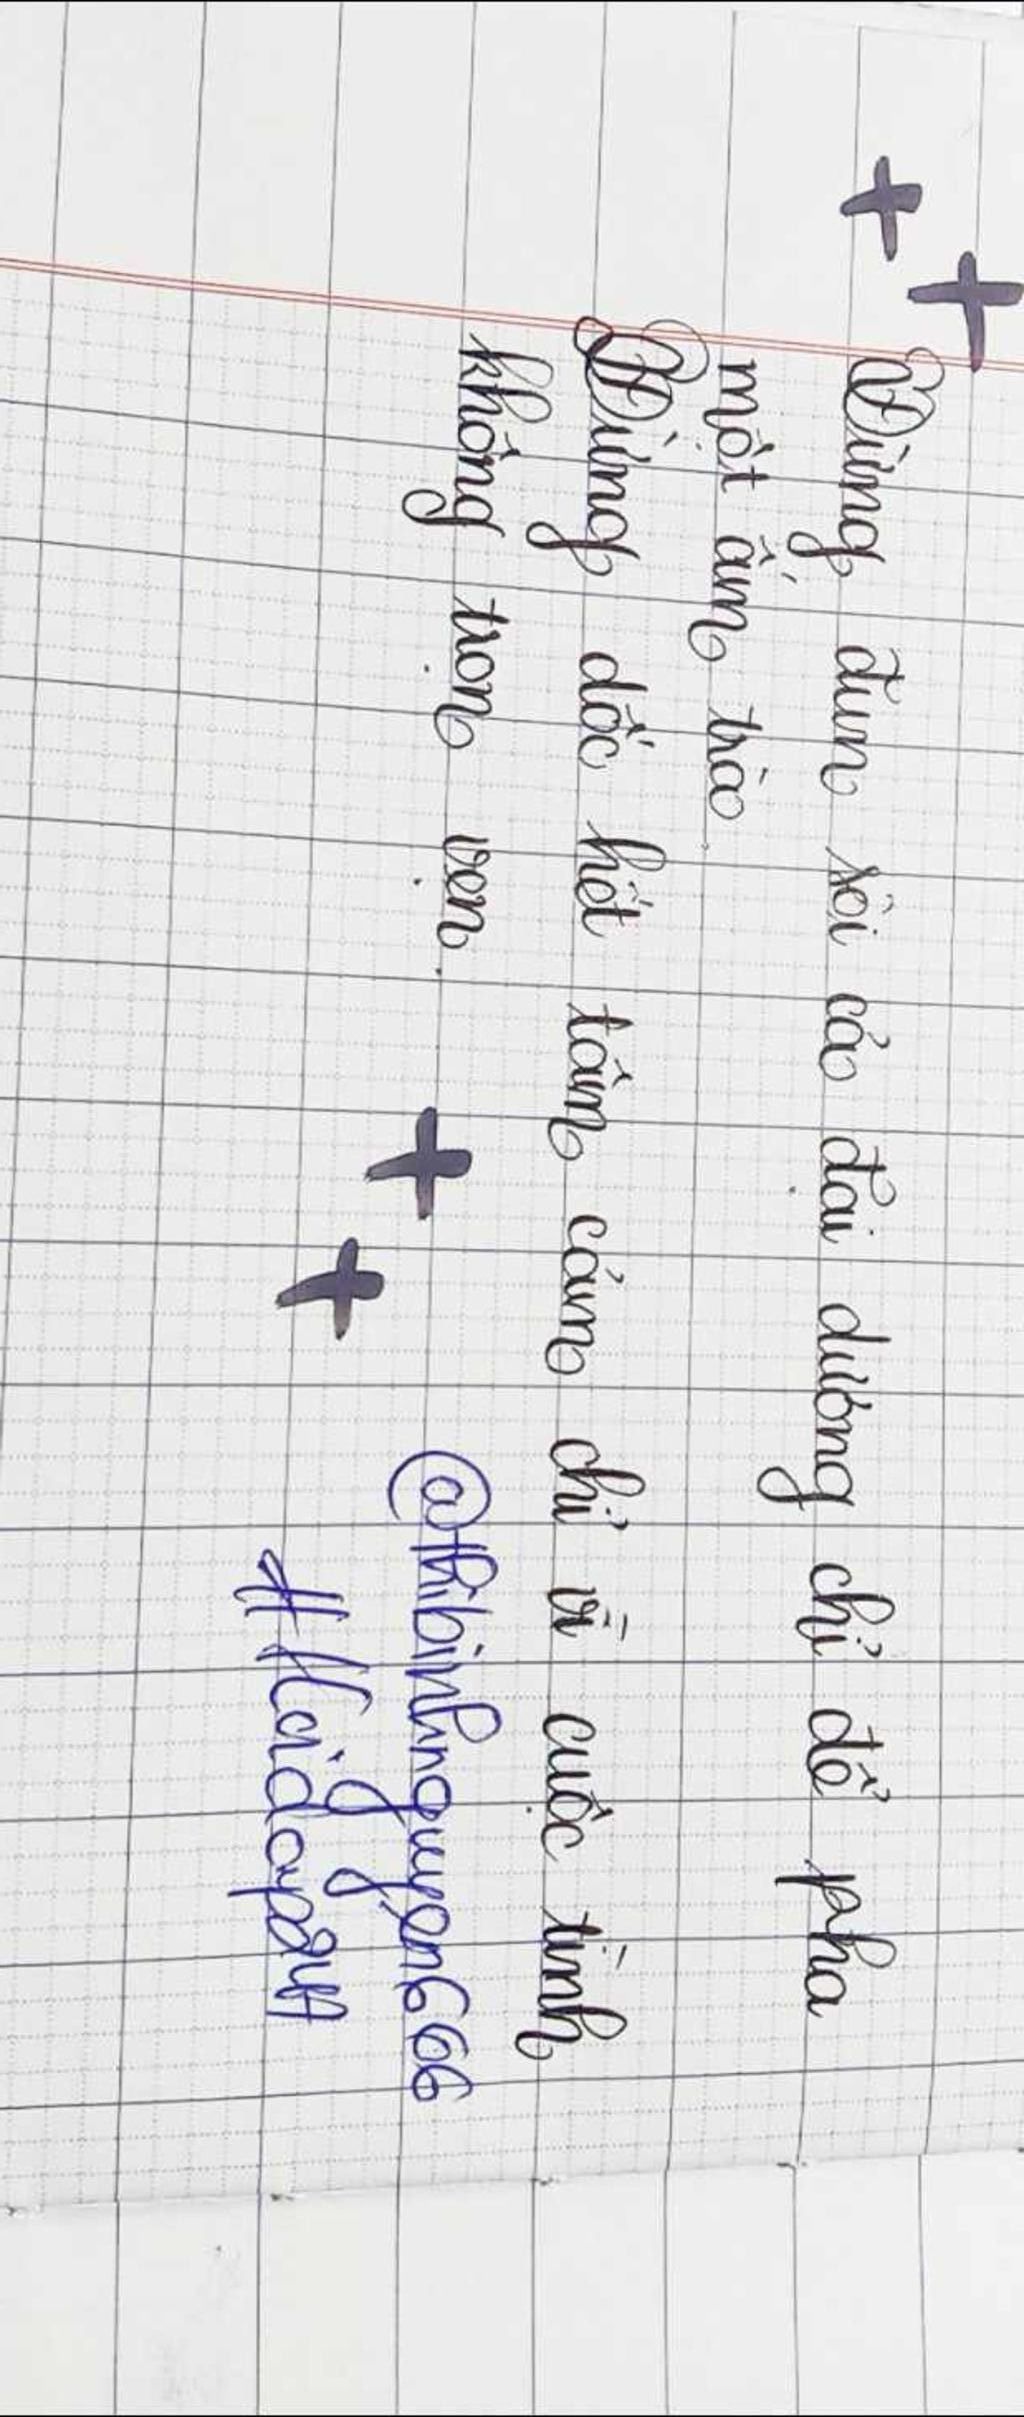 Đừng đun sôi cả đại dương chỉ để pha
một ấm trà
Đừng dốc hết tâm cảm chỉ vì cuộc tình
không trọn vẹn.
@thibinhnguyen666